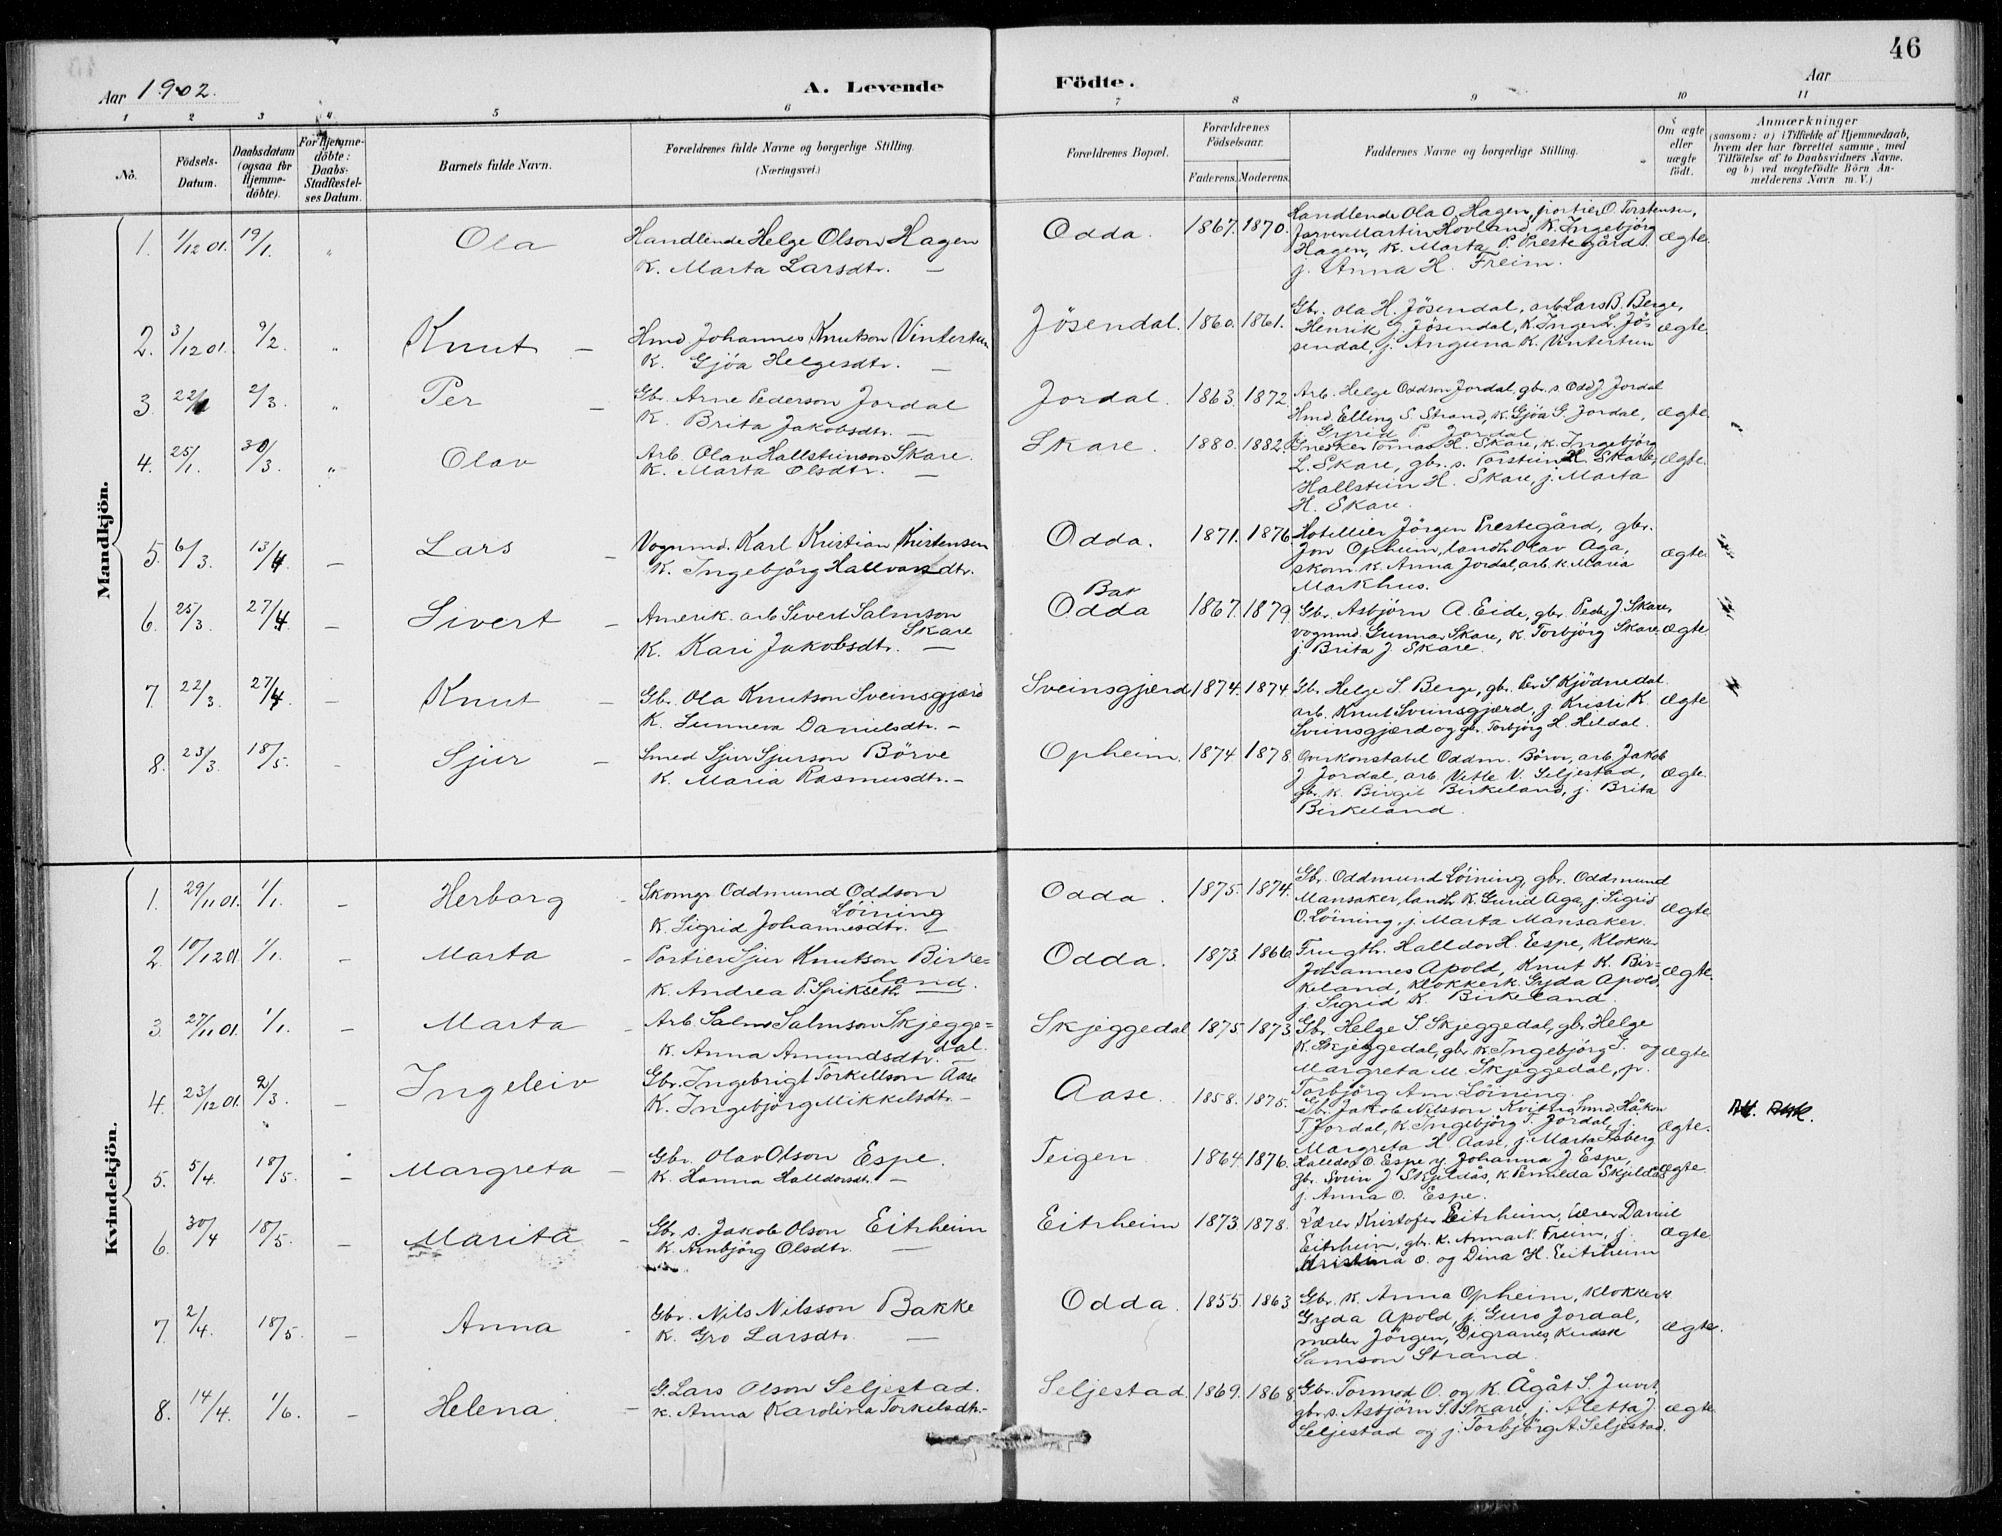 46
Aar 1902.
A. Levende
Födte.
Aar
1 2 3 4 5 6 7 8 9 10 11
No.
Födsels-Datum.
Daabsdatum (ogsaa for Hjemme-döbte).
For Hjemme-döbte: Daabs-Stadfæstel-ses Datum.
Barnets fulde Navn.
Forældrenes fulde Navne og borgerlige Stilling.
(Næringsvei.)
Forældrenes Bopæl.
Forældrenes Födselsaar.
Faderens. Moderens.
Faddernes Navne og borgerlige Stilling.
Om ægte eller uægte födt.
Anmærkninger
(saasom: a) i Tilfælde af Hjemmedaab,
hvem der har forrettet samme, med
Tilföielse af to Daabsvidners Navne,
og b) ved uægtefödte Börn An-
melderens Navn m. V.)
Mandkjön.
1. 1/12 01. 19/1. " Ola
Handlende Helge Olson Hagen
K. Marta Larsdtr. —
Odda. 1867. 1870.
Handlende Ola O. Hagen, portier O. Torstensen,
farver Martin Hovland, K. Ingebjörg
Hagen, K. Marta P. Prestegård,
j. Anna H. Freim.
ægte.
2. 3/12 01. 9/2. " Knut —
Hmd. Johannes Knutson Vintertun
K. Gjöa Helgesdtr. —
Jösendal. 1860. 1861.
Gbr. Ola H. Jösendal, arb. Lars B. Berge,
Henrik J. Jösendal, K. Inger L. Jö-
sendal, j. Anguna K. Vintertun
ægte
3. 22/1 2/3. " Per —
Gbr. Arne Pederson Jordal
K. Brita Jakobsdtr. —
Jordal. 1863. 1872
Arb. Helge Oddson Jordal, gbr. s. Odd J. Jordal
Hmd. Elling S. Strand, K. Gjöa G. Jordal,
j. Gyrid P. Jordal
ægte
4. 25/1. 30/3. " Olav
Arb. Olav Hallsteinson Skare.
K. Marta Olsdtr. —
Skare. 1880. 1882.
Snekker Tomas H. Skare, k. Ingebjörg
L. Skare, gbr. s. Torstein H. Skare,
Hallstein H. Skare, j. Marta
H. Skare.
ægte.
5. 6/3. 13/4 — Lars —
Vognmd. Karl Kristian Kristensen
K. Ingebjörg Hallvarsdtr.
Odda. 1871. 1876.
Hotellier Jörgen Prestegård, gbr.
Jon Opheim, landh. Olav Aga,
skom. k. Anna Jordal, arb. k. Maria
Markhus.
ægte
6. 25/3. 27/4 — Sivert —
Amerik. arb. Sivert Salmson
Skare
K. Kari Jakobsdtr. —
Bak
Odda 1867. 1879.
Gbr. Asbjörn A. Eide, gbr. Peder J. Skare,
vognmd. Gunnar Skare, K. Torbjörg Skare
j. Brita J. Skare.
ægte
7. 22/3. 27/4 Knut —
Gb. Ola Knutson Sveinsgjærd
K. Sunneva Danielsdtr. —
Sveinsgjærd 1874. 1874.
Gbr. Helge S. Berge, gbr. Per S. Kjödnedal
arb. Knut Sveinsgjærd, j. Kristi K.
Sveinsgjærd og gb. Torbjörg H. Hildal.
ægte
8. 23/3. 18/5. Sjur —
Smed Sjur Sjurson Börve
K. Maria Rasmusdtr. —
Opheim. 1874. 1878.
Overkonstabel Oddm. Börve, arb. Jakob
J. Jordal, arb. Vetle V. Seljestad,
gbr. K. Birgit Birkeland, j. Brita
Birkeland.
ægte.
Kvindekjön.
1. 29/11 01. 1/1. — Herborg
Skomgr Oddmund Oddson
Löining
K. Sigrid Johannesdtr. —
Odda. 1875. 1874.
Gb. Oddmund Löining, gbr. Oddmund
Mansaker, landh. K. Gurid Aga, j. Sigrid
O. Löining, j. Marta Mansaker.
ægte
2. 10/12 01. 1/1. — Marta —
Portier Sjur Knutson Birke=
land.
K. Andrea P. Spikseth —
Odda. 1873. 1866.
Frugth. Halldor H. Espe, Klokker
Johannes Apold, Knut K. Bir-
keland, klokkerk. Gyda Apold,
j. Sigrid K. Birkeland.
ægte.
3. 27/11 01. 1/1. — Marta —
Arb. Salm. Salmson Skjegge=
dal.
K. Anna Amundsdtr. —
Skjeggedal 1875. 1873.
Gb. Helge S. Skjeggedal, gbr. Helge
K. Skjeggedal, gbr. k. Ingebjörg T. og
Margreta M. Skjeggedal, p.
Torbjörg Am. Löining.
ægte
4. 23/12 01. 2/3. — Ingeleiv
Gbr. Ingebrigt Torkellson Aase
K. Ingebjörg Mikkelsdtr. —
Aase. 1858. 1875.
Gb. Jakob Nilsson Kvitnå, Hmd. Håkon
T. Jordal, K. Ingebjörg T. Jordal, j.
Margreta H. Aase, j. Marta Isberg
ægte.
5. 5/4. 18/5. — Margreta —
Gbr. Olav Olson Espe.
K. Hanna Halldorsdtr. —
Teigen 1864. 1876.
Halldor O. Espe, y. Johanna J. Espe,
gbr. Svein J. Skjeldås, K. Pernilda Skjeldås
j. Anna O. Espe.
ægte
6. 30/4 18/5. — Marita —
Gbr. s. Jakob Olson Eitrheim
K. Arnbjörg Olsdtr. —
Eitrheim 1873. 1878.
Lærer Kristofer Eitrheim, lærer Daniel
Eitrheim, gbr. k. Anna N. Freim, j.
Kristina O. og Dina H. Eitrheim
ægte
7. 2/4. 18/5. — Anna —
Gbr. Nils Nilsson Bakke
K. Gro Larsdtr. —
Odda. 1855. 1863
Gbr. K. Anna Opheim, Klokkerk
Gyda Apold, j. Guro Jordal,
maler Jörgen Digranes, Kudsk
Samson Strand.
ægte.
8. 14/4. 1/6. — Helena. —
G. Lars Olson Seljestad.
K. Anna Karolina Torkelsdtr. —
Seljestad. 1869. 1868.
Gbr. Tormod O. og K. Ågåt S. Juvet,
gbr. s. Asbjörn S. Skare, j. Aletta J.
Seljestad og j. Torbjörg A. Seljestad.
ægte